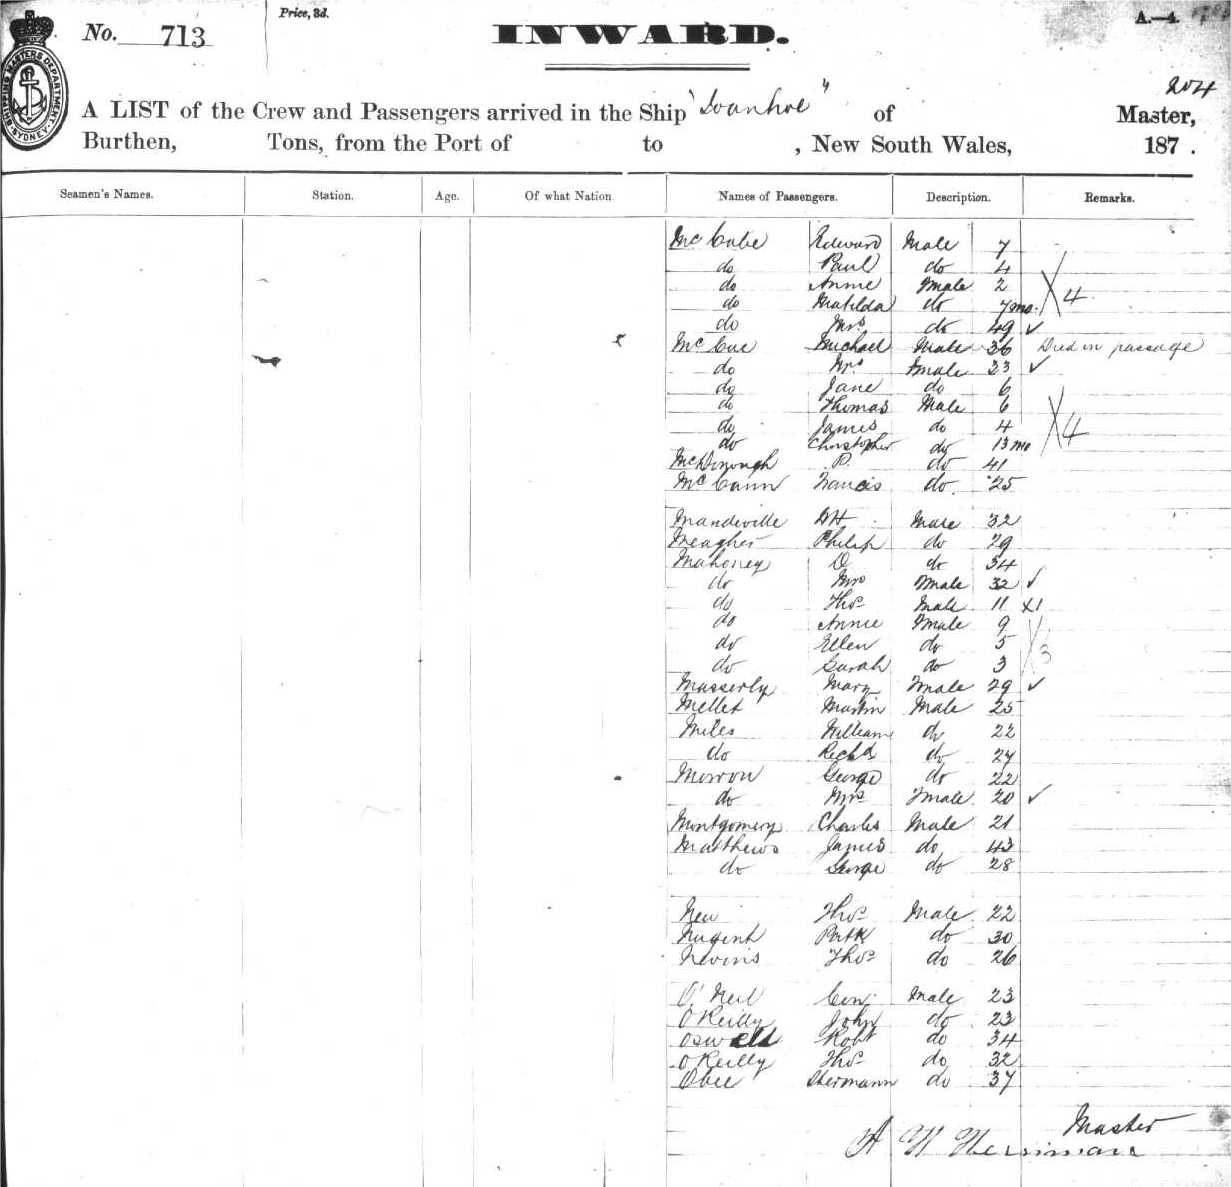 No. 713
Price, 3d.
INWARD.
A.—4.
204
SHIPPING MASTERS DEPARTMENT SYDNEY
A LIST of the Crew and Passengers arrived in the Ship "Ivanhoe" of Master,
Burthen, Tons, from the Port of to , New South Wales, 187 .
Seamen's Names. Station. Age. Of what Nation Names of Passengers. Description. Remarks.
McCabe Edward Male 7
do Paul do 4
do Annie Fmale 2
do Matilda do 7 mo. X 4
do Mrs do 49 ✓
McCue Michael Male 36 Died in passage
do Mrs Fmale 33 ✓
do Jane do 6
do Thomas Male 6
do James do 4 X 4
do Christopher do 13 mo
McDonough P. do 41
McCann Francis do. 25
Mandeville Male 32
Meagher Philip do 29
Mahoney D do 34
do Mrs Fmale 32 ✓
do Thos Male 11 X1
do Annie Fmale 9
do Ellen do 5 X 3
do Sarah do 3
Masserly Mary Fmale 29 ✓
Mellet Martin Male 25
Miles William do 22
do Richd do 24
Morrow George do 22
do Mrs Fmale 20 ✓
Montgomery Charles Male 21
Matthews James do 43
do George do 28
New Thos Male 22
Nugent Patk do 30
Nevins Thos do 26
O'Neil Male 23
O'Reilly John do 23
Osweld Robt do 34
O'Reilly Thos do 32
Obee Hermann do 37
Master
A W Merriman